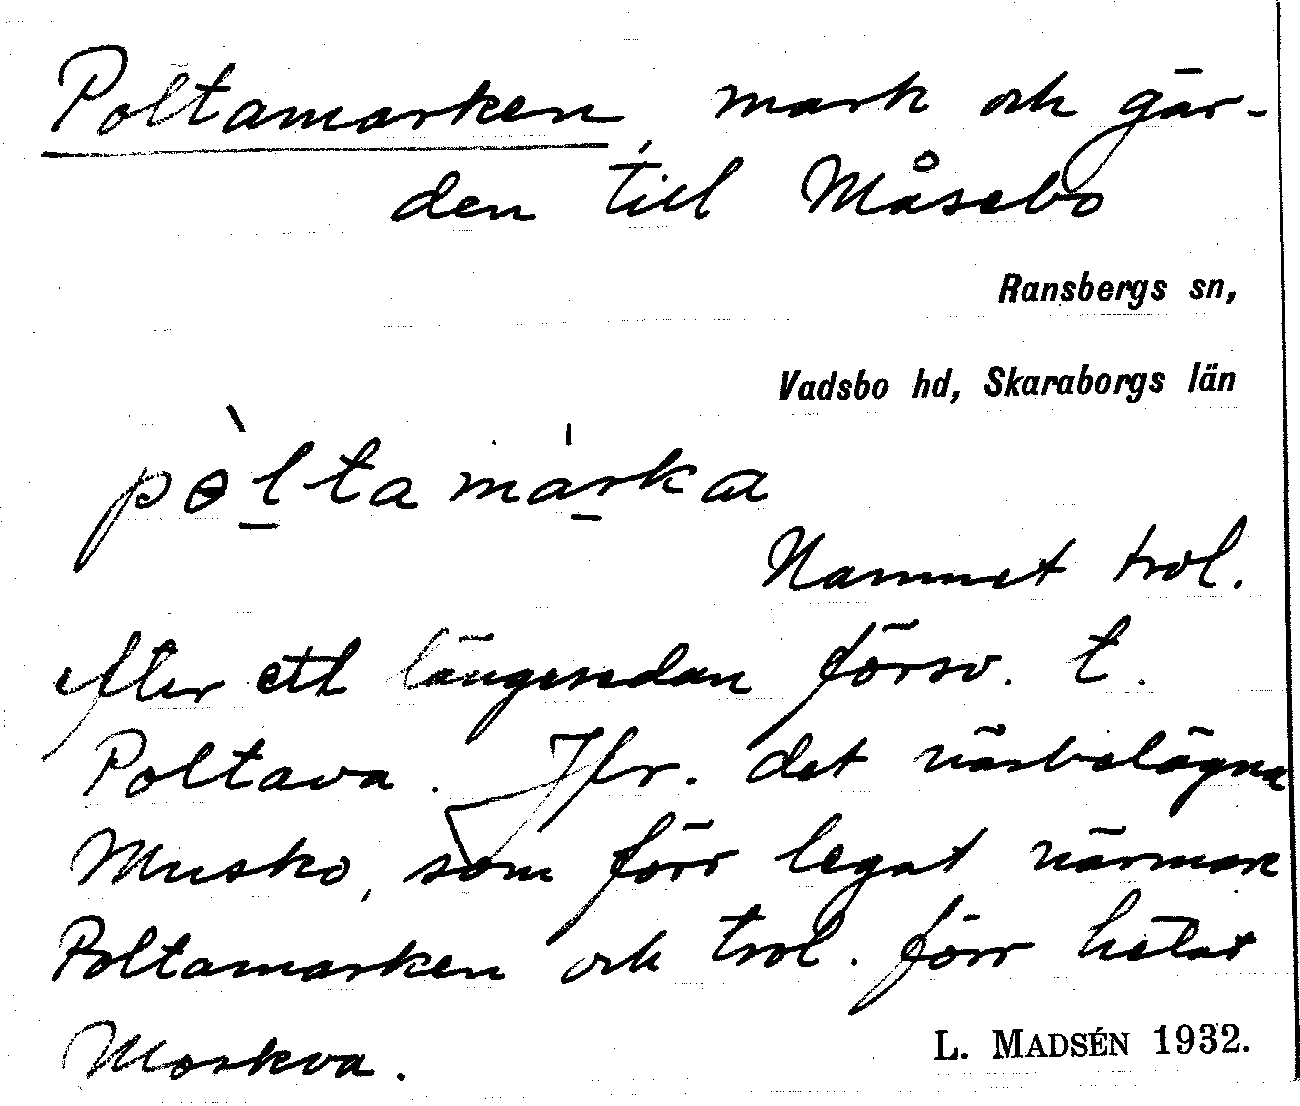 Poltamarken, mark och gär-
den till Måsebo
Ransbergs sn,
Vadsbo hd, Skaraborgs län
pɵ̀ltamárka
Namnet trol.
efter ett längesedan försv. t.
Poltava. Jfr. det närbelägna
Musko, som förr legat närmare
Poltamarken och trol. förr hetat
Moskva.
L. MADSÉN 1932.